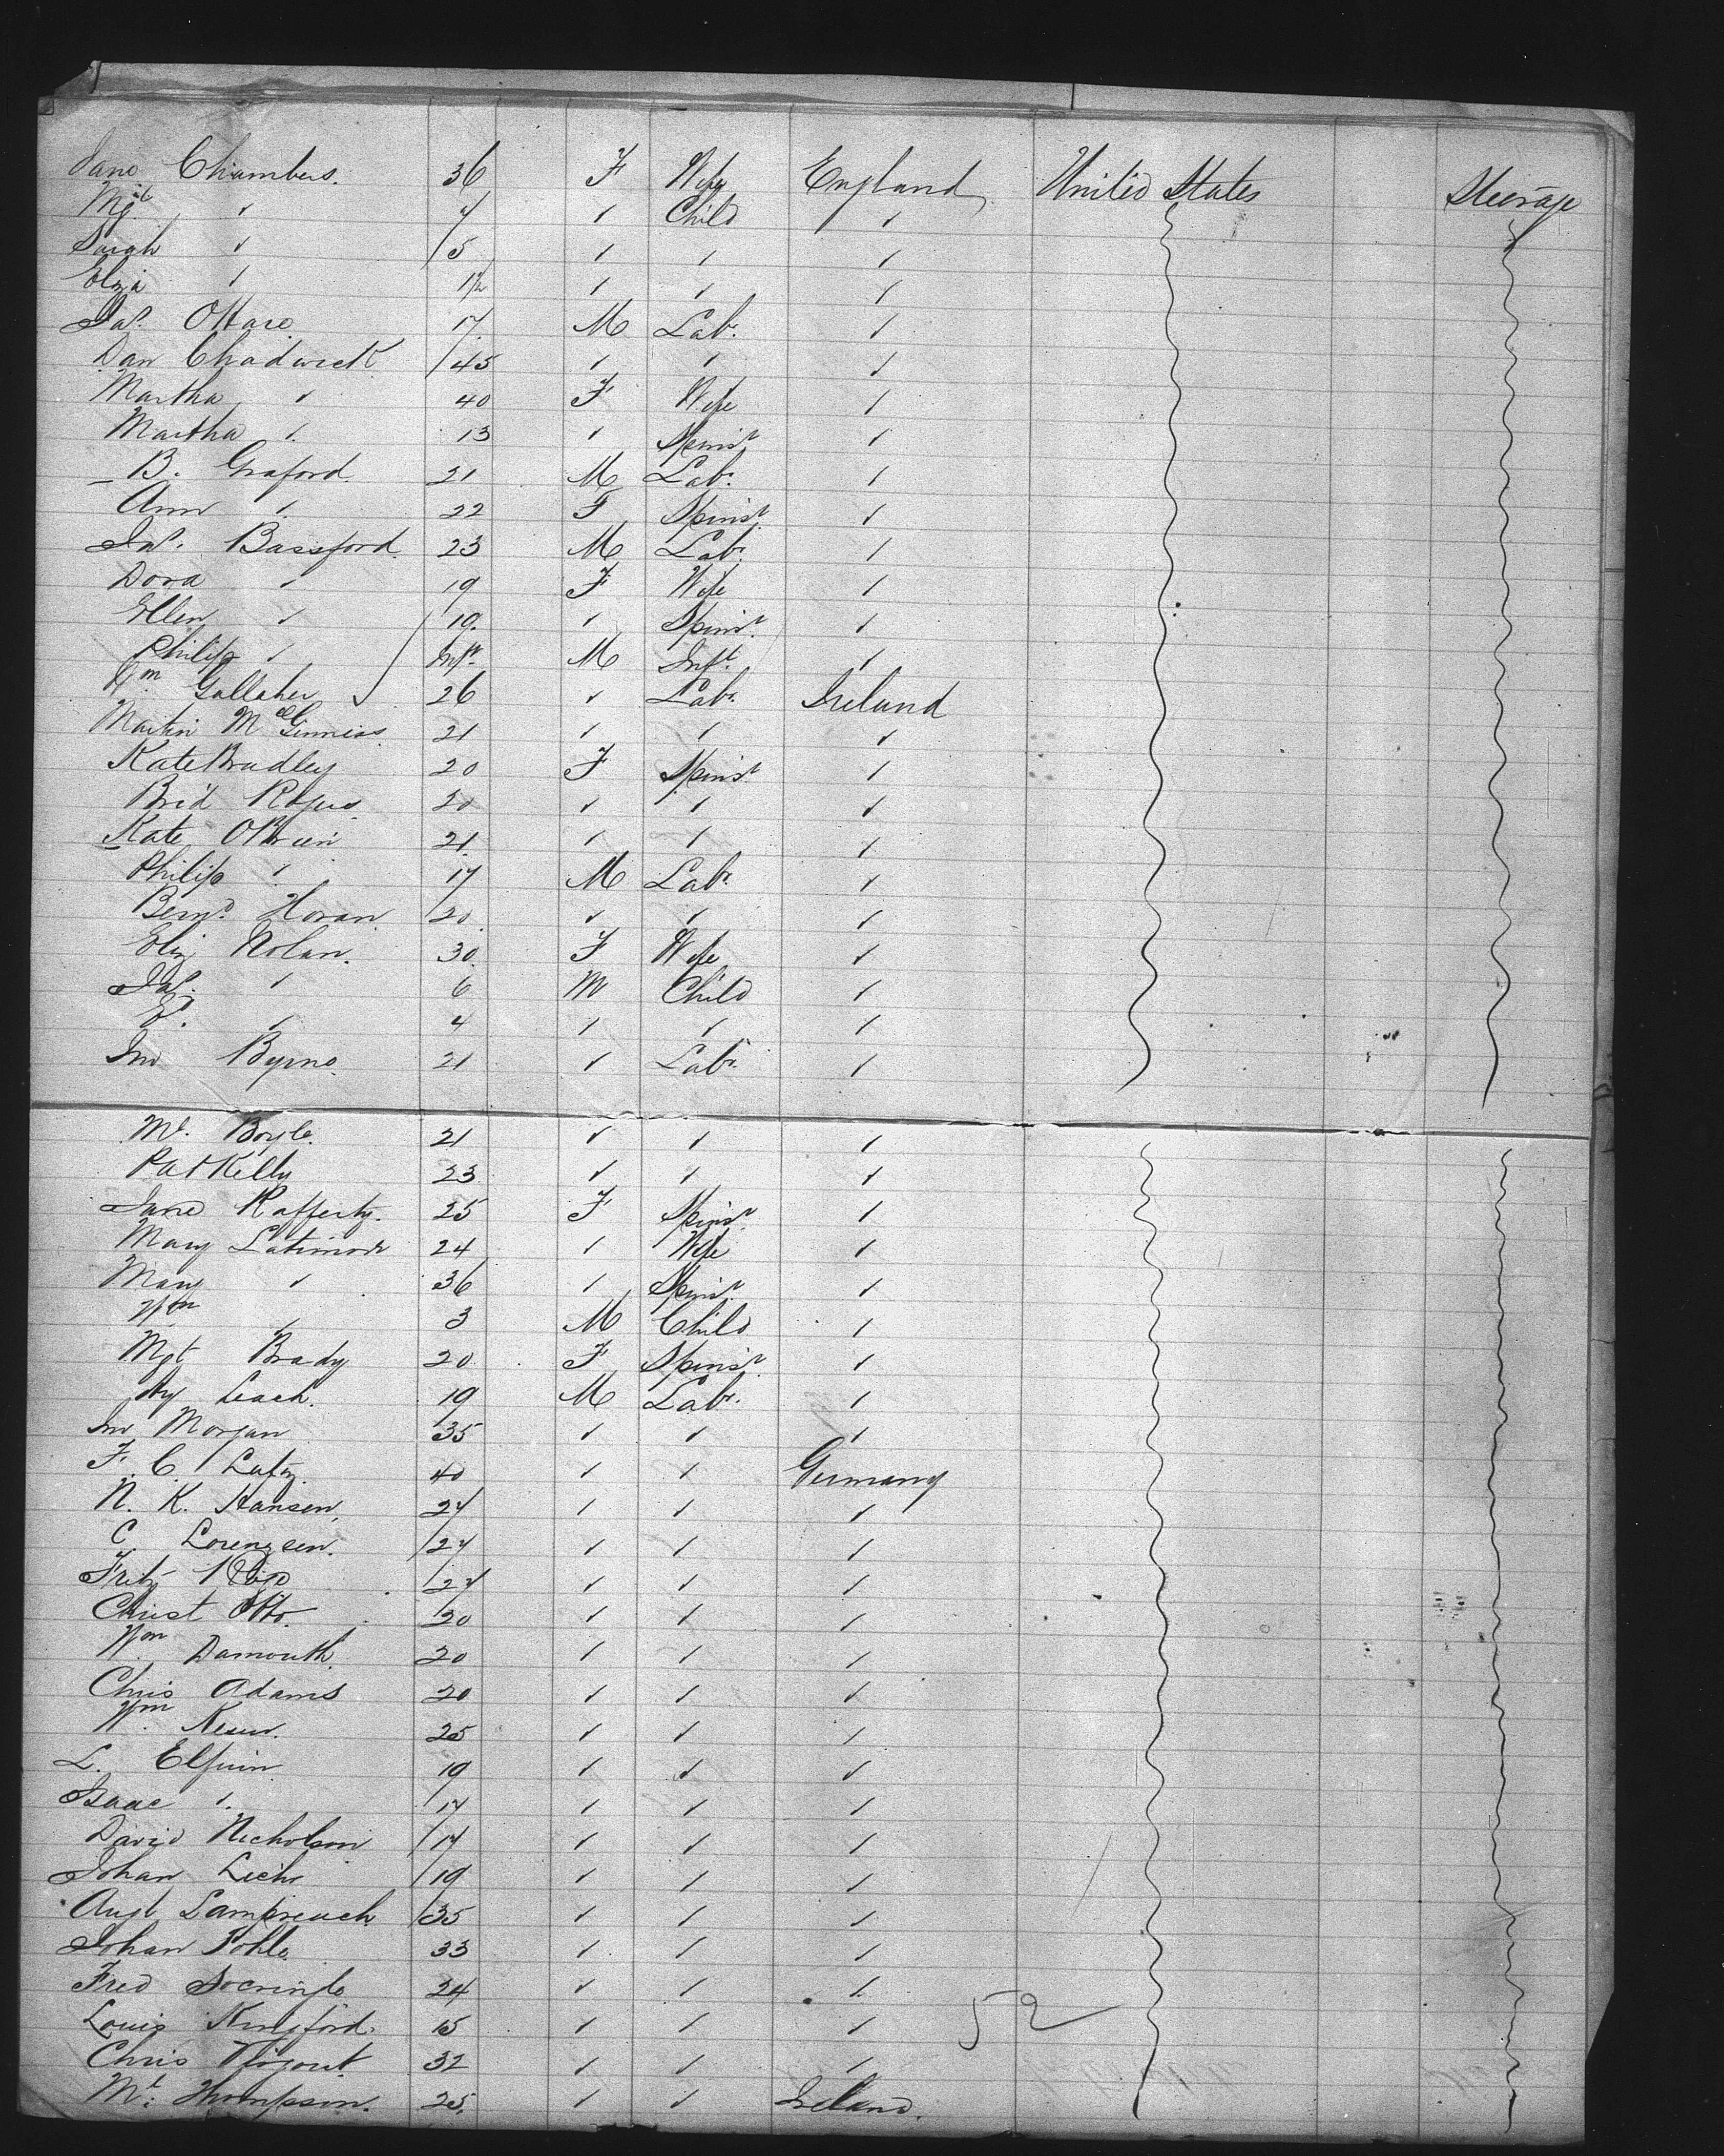 Jane Chambers. 36 F Wife England United States Steerage
Mgt ✓ 7 ✓ Child ✓
Sarah ✓ 5 ✓ ✓ ✓
Eliza ✓ 1½ ✓ ✓ ✓
Jas. OHare 17 M Lab. ✓
Dan Chadwick 45 ✓ ✓ ✓
Martha ✓ 40 F Wife ✓
Martha ✓ 13 ✓ Spinsr ✓
B. Graford 21 M Labr ✓
Ann ✓ 22 F Spinsr ✓
Jas. Bassford 23 M Labr ✓
Dora ✓ 19 F Wife ✓
Ellen ✓ 19 ✓ Spinsr ✓
Philip ✓ Inft. M Inft. ✓
Wm Gallaher 26 ✓ Labr. Ireland
Martin McGinniss 21 ✓ ✓ ✓
Kate Bradley 20 F Spinsr ✓
Brid Rogers 20 ✓ ✓ ✓
Kate OBrien 21 ✓ ✓ ✓
Philip ✓ 17 M Labr. ✓
Bernd. Horan 20 ✓ ✓ ✓
Eliz Nolan. 30 F Wife ✓
Jas. ✓ 6 M Child ✓
Ed. ✓ 4 ✓ ✓ ✓
Jno Byrne. 21 ✓ Labr. ✓
Ml. Boyle. 21 ✓ ✓ ✓
Pat Kelly 23 ✓ ✓ ✓
Jane Rafferty. 25 F Spinsr ✓
Mary Latimore 24 ✓ Wife ✓
Mary ✓ 36 ✓ Spinsr ✓
Wm ✓ 3 M Child ✓
Mgt Brady 20 F Spinsr ✓
Hy Leach. 19 M Labr. ✓
Jno Morgan 35 ✓ ✓ ✓
F. C. 40 ✓ ✓ Germany
N. K. Hansen, 27 ✓ ✓ ✓
C. Lorenzsen. 27 ✓ ✓ ✓
Fritz 27 ✓ ✓ ✓
Christ Otto. 20 ✓ ✓ ✓
Wm Damouth 20 ✓ ✓ ✓
Chris Adams 20 ✓ ✓ ✓
Wm 25 ✓ ✓ ✓
L. Elfuin 19 ✓ ✓ ✓
Isaac ✓ 17 ✓ ✓ ✓
David Nicholson 17 ✓ ✓ ✓
Johan 19 ✓ ✓ ✓
Augt Lampreuch 35 ✓ ✓ ✓
Johan Pohle 33 ✓ ✓ ✓
Fred 24 ✓ ✓ ✓
Louis Kingford. 15 ✓ ✓ ✓
52
Chris 32 ✓ ✓ ✓
Mt. Thompson. 25. ✓ ✓ Ireland.